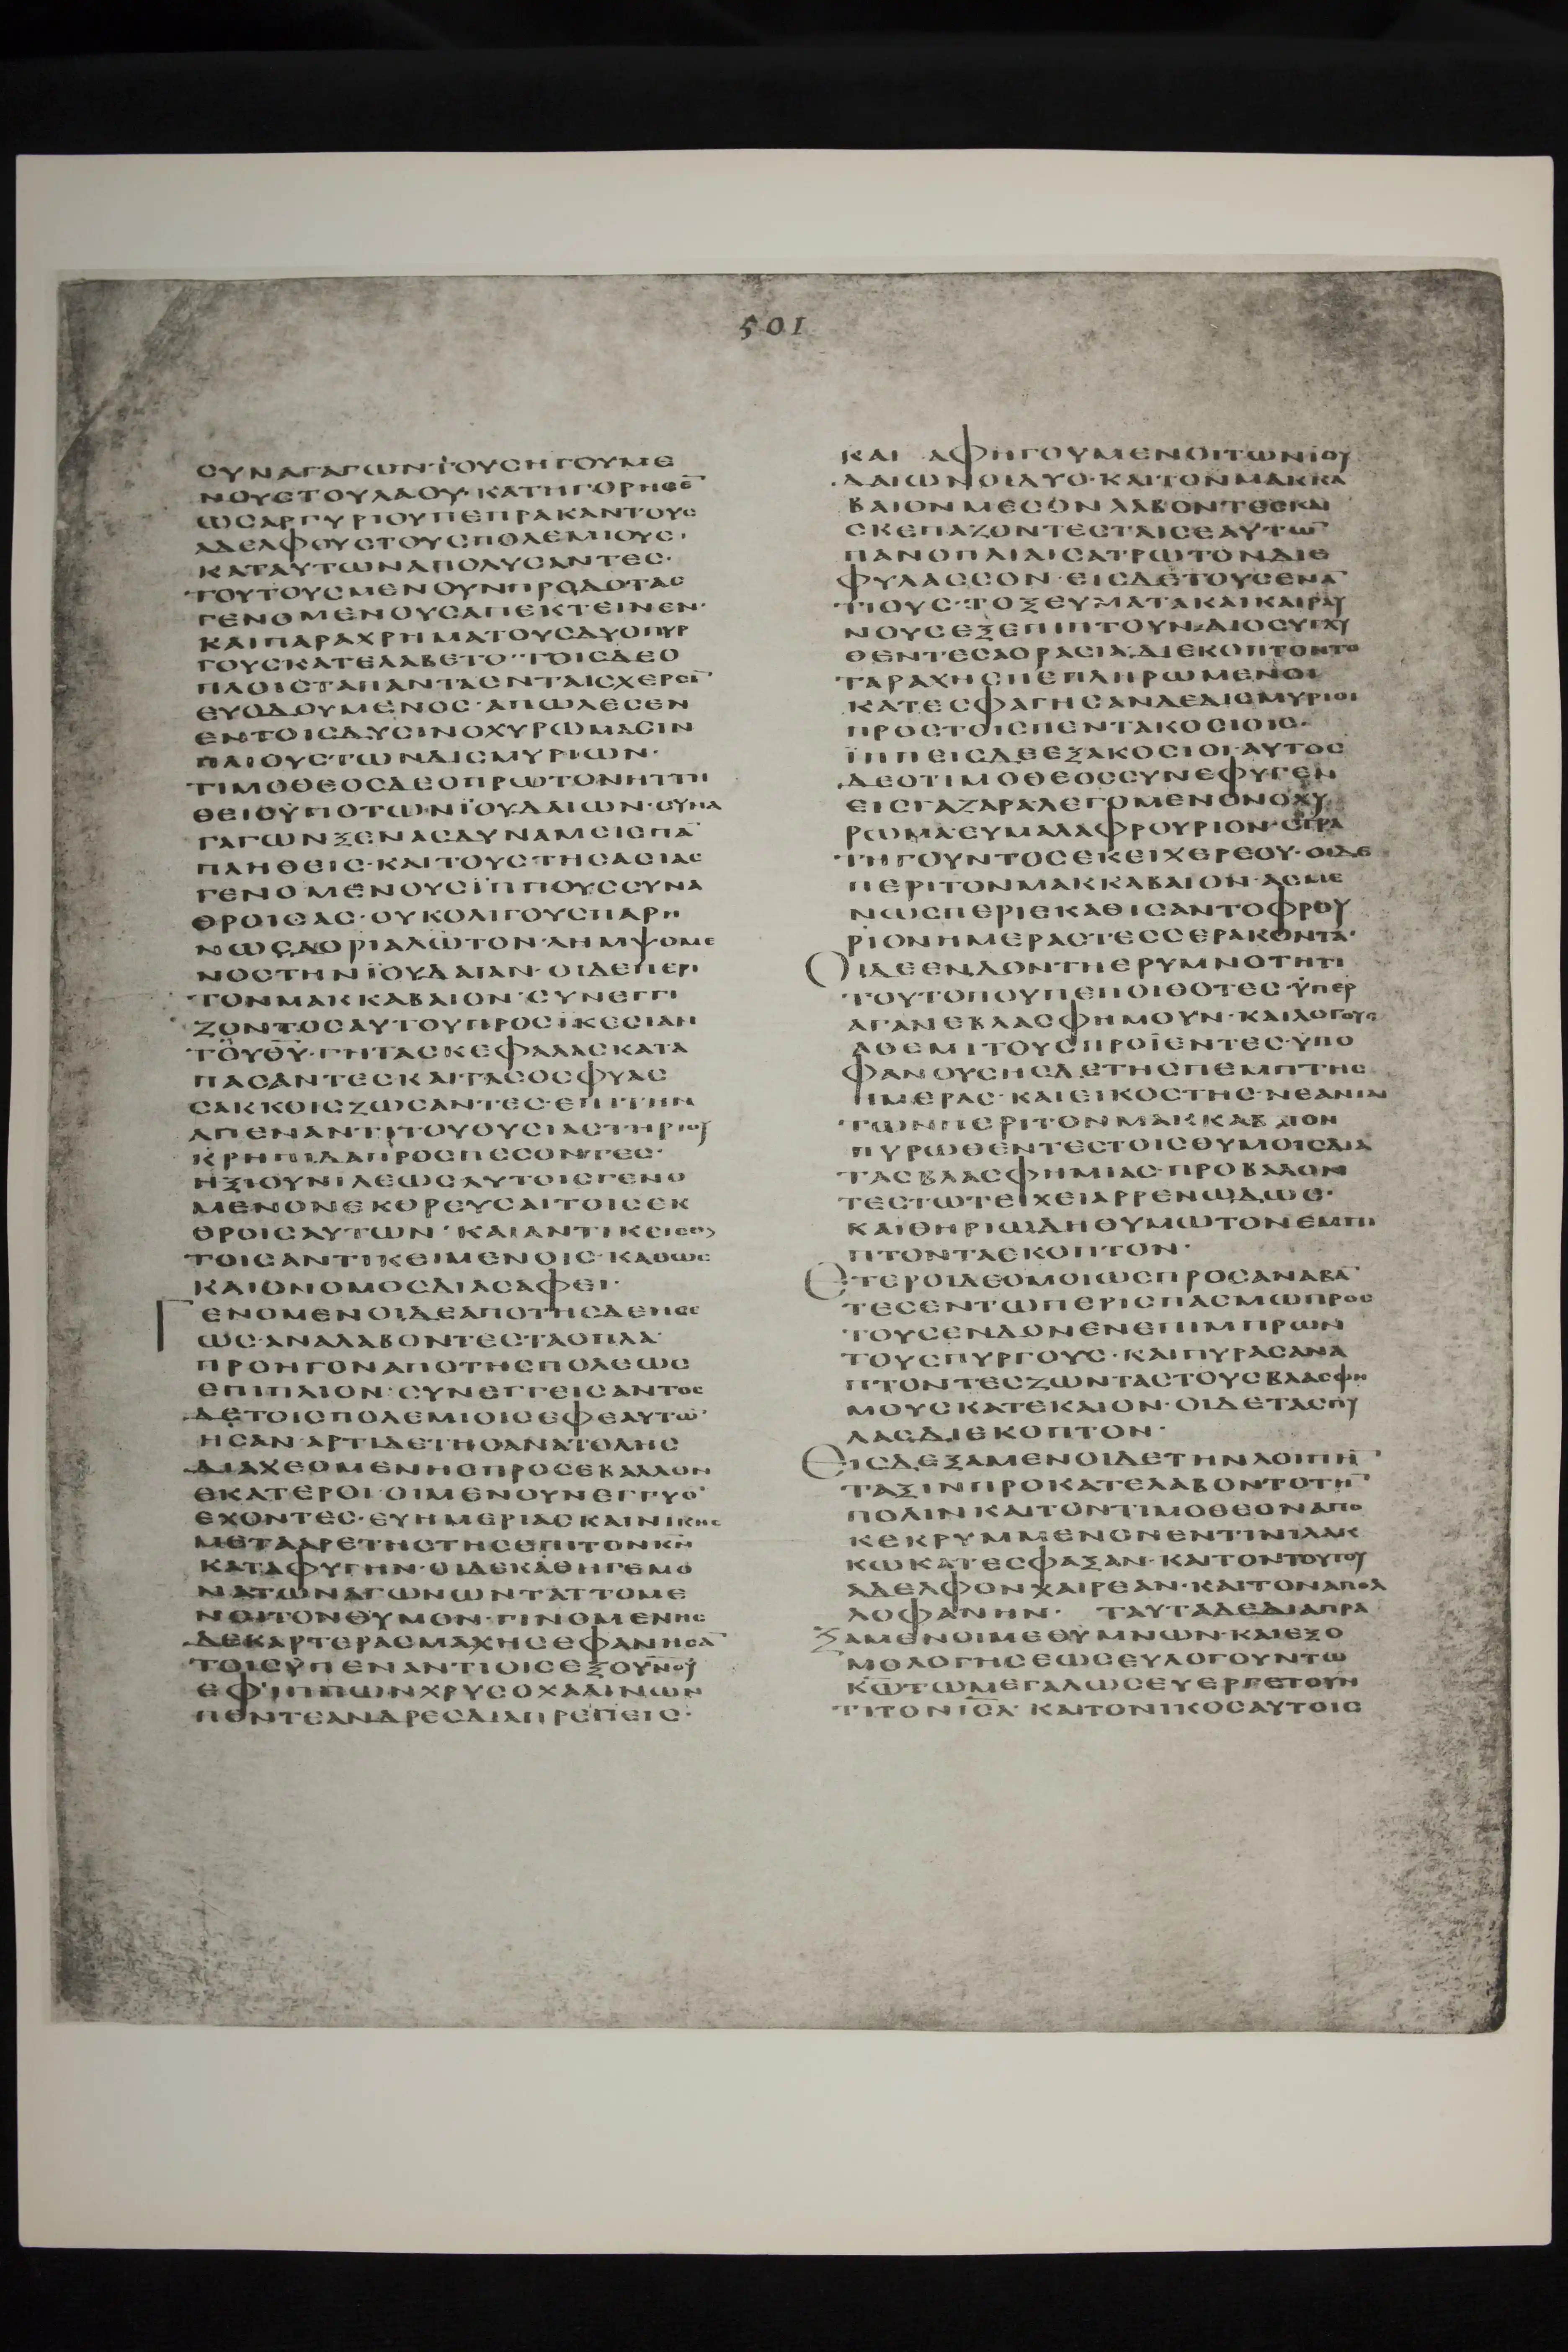 501
ΣΥΝΑΓΑΓΩΝΤΟΥΣΗΓΟΥΜΕ
ΝΟΥΣΤΟΥΛΑΟΥ·ΚΑΤΗΓΟΡΗΣΕ̅
ΩΣΑΡΓΥΡΙΟΥΠΕΠΡΑΚΑΝΤΟΥΣ
ΑΔΕΛΦΟΥΣΤΟΥΣΠΟΛΕΜΙΟΥΣ·
ΚΑΤΑΥΤΩΝΑΠΟΛΥΣΑΝΤΕΣ·
ΤΟΥΤΟΥΣΜΕΝΟΥΝΠΡΟΔΟΤΑΣ
ΓΕΝΟΜΕΝΟΥΣΑΠΕΚΤΕΙΝΕΝ·
ΚΑΙΠΑΡΑΧΡΗΜΑΤΟΥΣΔΥΟΠΥΡ
ΓΟΥΣΚΑΤΕΛΑΒΕΤΟ·ΤΟΙΣΔΕΟ
ΠΛΟΙΣΤΑΠΑΝΤΑΕΝΤΑΙΣΧΕΡΣΙ̅
ΕΥΟΔΟΥΜΕΝΟΣ·ΑΠΩΛΕΣΕΝ
ΕΝΤΟΙΣΔΥΣΙΝΟΧΥΡΩΜΑΣΙΝ
ΠΛΙΟΥΣΤΩΝΔΙΣΜΥΡΙΩΝ·
ΤΙΜΟΘΕΟΣΔΕΟΠΡΩΤΟΝΗΤΤΗ
ΘΕΙΣΫΠΟΤΩΝΪΟΥΔΑΙΩΝ·ΣΥΝΑ
ΓΑΓΩΝΞΕΝΑΣΔΥΝΑΜΕΙΣΠΑ̅
ΠΛΗΘΕΙΣ·ΚΑΙΤΟΥΣΤΗΣΑΣΙΑΣ
ΓΕΝΟΜΕΝΟΥΣΪΠΠΟΥΣΣΥΝΑ
ΘΡΟΙΣΑΣ·ΟΥΚΟΛΙΓΟΥΣΠΑΡΗ
ΝΩΣΔΟΡΙΑΛΩΤΟΝ·ΛΗΜΨΟΜΕ
ΝΟΣΤΗΝΪΟΥΔΑΙΑΝ·ΟΙΔΕΠΕΡΙ
ΤΟΝΜΑΚΚΑΒΑΙΟΝ·ΣΥΝΕΓΓΙ
ΖΟΝΤΟΣΑΥΤΟΥΠΡΟΣΪΚΕΣΙΑΝ
ΤΟΥΘ̅Υ̅·ΓΗΤΑΣΚΕΦΑΛΑΣΚΑΤΑ
ΠΑΣΑΝΤΕΣΚΑΙΤΑΣΟΣΦΥΑΣ
ΣΑΚΚΟΙΣΖΩΣΑΝΤΕΣ·ΕΠΙΤΗΝ
ΑΠΕΝΑΝΤΙΤΟΥΘΥΣΙΑΣΤΗΡΙΟΥ
ΚΡΗΠΙΔΑΠΡΟΣΠΕΣΟΝΤΕΣ·
ΗΞΙΟΥΝΙΛΕΩΣΑΥΤΟΙΣΓΕΝΟ
ΜΕΝΟΝΕΚΘΡΕΥΣΑΙΤΟΙΣΕΚ
ΘΡΟΙΣΑΥΤΩΝ·ΚΑΙΑΝΤΙΚΕΙΣΘΑΙ
ΤΟΙΣΑΝΤΙΚΕΙΜΕΝΟΙΣ·ΚΑΘΩΣ
ΚΑΙΟΝΟΜΟΣΔΙΑΣΑΦΕΙ·
ΓΕΝΟΜΕΝΟΙΔΕΑΠΟΤΗΣΔΕΗΣΕ
ΩΣ·ΑΝΑΛΑΒΟΝΤΕΣΤΑΟΠΛΑ·
ΠΡΟΗΓΟΝΑΠΟΤΗΣΠΟΛΕΩΣ
ΕΠΙΠΛΙΟΝ·ΣΥΝΕΓΓΕΙΣΑΝΤΟΣ
ΔΕΤΟΙΣΠΟΛΕΜΙΟΙΣΕΦΕΑΥΤΩ̅
ΗΣΑΝ·ΑΡΤΙΔΕΤΗΣΑΝΑΤΟΛΗΣ
ΔΙΑΧΕΟΜΕΝΗΣΠΡΟΣΕΒΑΛΛΟΝ
ΕΚΑΤΕΡΟΙ·ΟΙΜΕΝΟΥΝΕΓΓΥΟ̅
ΕΧΟΝΤΕΣ·ΕΥΗΜΕΡΙΑΣΚΑΙΝΙΚΗΣ
ΜΕΤΑΑΡΕΤΗΣΤΗΣΕΠΙΤΟΝΚ̅Ν̅
ΚΑΤΑΦΥΓΗΝ·ΟΙΔΕΚΑΘΗΓΕΜΟ
ΝΑΤΩΝΑΓΩΝΩΝΤΑΤΤΟΜΕ
ΝΟΙΤΟΝΘΥΜΟΝ·ΓΙΝΟΜΕΝΗΣ
ΔΕΚΑΡΤΕΡΑΣΜΑΧΗΣΕΦΑΝΗΣΑ̅
ΤΟΙΣΫΠΕΝΑΝΤΙΟΙΣΕΞΟΥ̅Ν̅ΟΥ
ΕΦΙΠΠΩΝΧΡΥΣΟΧΑΛΙΝΩΝ
ΠΕΝΤΕΑΝΔΡΕΣΔΙΑΠΡΕΠΕΙΣ·
ΚΑΙ ΑΦΗΓΟΥΜΕΝΟΙΤΩΝΙΟΥ
ΔΑΙΩΝΟΙΔΥΟ·ΚΑΙΤΟΝΜΑΚΚΑ
ΒΑΙΟΝΜΕΣΟΝΛΑΒΟΝΤΕΣΚΑΙ
ΣΚΕΠΑΖΟΝΤΕΣΤΑΙΣΕΑΥΤΩ̅
ΠΑΝΟΠΛΙΑΙΣΑΤΡΩΤΟΝΔΙΕ
ΦΥΛΑΣΣΟΝ·ΕΙΣΔΕΤΟΥΣΕΝΑ̅
ΤΙΟΥΣ·ΤΟΞΕΥΜΑΤΑΚΑΙΚΑΙΡΑΥ
ΝΟΥΣΕΞΕΠΙΠΤΟΥΝ·ΔΙΟΣΥΓΧΥ
ΘΕΝΤΕΣΑΟΡΑΣΙΑΔΙΕΚΟΠΤΟΝΤΟ
ΤΑΡΑΧΗΣΠΕΠΛΗΡΩΜΕΝΟΙ
ΚΑΤΕΣΦΑΓΗΣΑΝΔΕΔΙΣΜΥΡΙΟΙ
ΠΡΟΣΤΟΙΣΠΕΝΤΑΚΟΣΙΟΙΣ·
ΪΠΠΕΙΣΔΕΕΞΑΚΟΣΙΟΙ·ΑΥΤΟΣ
ΔΕΟΤΙΜΟΘΕΟΣΣΥΝΕΦΥΓΕΝ
ΕΙΣΓΑΖΑΡΑΛΕΓΟΜΕΝΟΝΟΧΥ
ΡΩΜΑ·ΕΥΜΑΛΑΦΡΟΥΡΙΟΝ·ΣΤΡΑ
ΤΗΓΟΥΝΤΟΣΕΚΕΙΧΕΡΕΟΥ·ΟΙΔΕ
ΠΕΡΙΤΟΝΜΑΚΚΑΒΑΙΟΝ·ΑΣΜΕ
ΝΩΣΠΕΡΙΕΚΑΘΙΣΑΝΤΟΦΡΟΥ
ΡΙΟΝΗΜΕΡΑΣΤΕΣΣΕΡΑΚΟΝΤΑ·
ΟΙΔΕΕΝΔΟΝΤΗΕΡΥΜΝΟΤΗΤΙ
ΤΟΥΤΟΠΟΥΠΕΠΟΙΘΟΤΕΣ·ΫΠΕΡ
ΑΓΑΝΕΒΛΑΣΦΗΜΟΥΝ·ΚΑΙΛΟΓΟΥΣ
ΑΘΕΜΙΤΟΥΣΠΡΟΪΕΝΤΕΣ·ΫΠΟ
ΦΑΝΟΥΣΗΣΔΕΤΗΣΠΕΜΠΤΗΣ
ΗΜΕΡΑΣ·ΚΑΙΕΙΚΟΣΤΗΣ·ΝΕΑΝΙΑΙ
ΤΩΝΠΕΡΙΤΟΝΜΑΚΚΑΒΑΙΟΝ
ΠΥΡΩΘΕΝΤΕΣΤΟΙΣΘΥΜΟΙΣΔΙΑ
ΤΑΣΒΛΑΣΦΗΜΙΑΣ·ΠΡΟΒΑΛΟΝ
ΤΕΣΤΩΤΕΙΧΕΙΑΡΡΕΝΩΔΩΣ·
ΚΑΙΘΗΡΙΩΔΗΘΥΜΩΤΟΝΕΜΠΙ
ΠΤΟΝΤΑΕΚΟΠΤΟΝ·
ΕΤΕΡΟΙΔΕΟΜΟΙΩΣΠΡΟΣΑΝΑΒΑ̅
ΤΕΣΕΝΤΩΠΕΡΙΣΠΑΣΜΩΠΡΟΣ
ΤΟΥΣΕΝΔΟΝΕΝΕΠΙΜΠΡΩΝ
ΤΟΥΣΠΥΡΓΟΥΣ·ΚΑΙΠΥΡΑΣΑΝΑ
ΠΤΟΝΤΕΣΖΩΝΤΑΣΤΟΥΣΒΛΑΣΦΗ
ΜΟΥΣΚΑΤΕΚΑΙΟΝ·ΟΙΔΕΤΑΣΠΥ
ΛΑΣΔΙΕΚΟΠΤΟΝ·
ΕΙΣΔΕΞΑΜΕΝΟΙΔΕΤΗΝΛΟΙΠΗ̅
ΤΑΞΙΝΠΡΟΚΑΤΕΛΑΒΟΝΤΟΤΗ̅
ΠΟΛΙΝΚΑΙΤΟΝΤΙΜΟΘΕΟΝΑΠΟ
ΚΕΚΡΥΜΜΕΝΟΝΕΝΤΙΝΙΛΑΚ
ΚΩΚΑΤΕΣΦΑΞΑΝ·ΚΑΙΤΟΝΤΟΥΤΟΥ
ΑΔΕΛΦΟΝΧΑΙΡΕΑΝ·ΚΑΙΤΟΝΑΠΟΛ
ΛΟΦΑΝΗΝ· ΤΑΥΤΑΔΕΔΙΑΠΡΑ
ΞΑΜΕΝΟΙΜΕΘΥΜΝΩΝ·ΚΑΙΕΞΟ
ΜΟΛΟΓΗΣΕΩΣΕΥΛΟΓΟΥΝΤΩ
Κ̅Ω̅ΤΩΜΕΓΑΛΩΣΕΥΕΡΓΕΤΟΥΝ
ΤΙΤΟΝΙ̅Σ̅Λ̅·ΚΑΙΤΟΝΙΚΟΣΑΥΤΟΙΣ